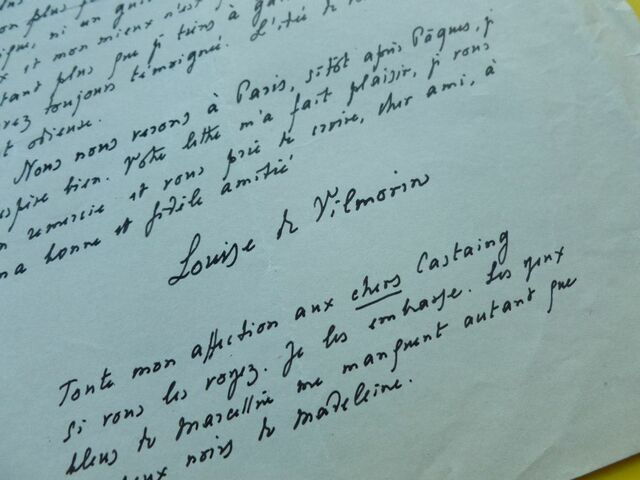 on plus
ique, ni un
x et mon mieux n'est
tant plus que j'y tiens à
avez toujours témoigné. L'idée de
t odieuse.
Nous nous verrons à Paris, sitôt après Pâques, j'
espère bien. Votre lettre m'a fait plaisir, je vous
en remercie et vous prie de croire, cher ami, à
ma bonne et fidèle amitié
Louise de Vilmorin
Toute mon affection aux chers Castaing
si vous les voyez. Je les embrasse. Les yeux
bleus de Marcellin me manquent autant que
yeux noirs de Madeleine.